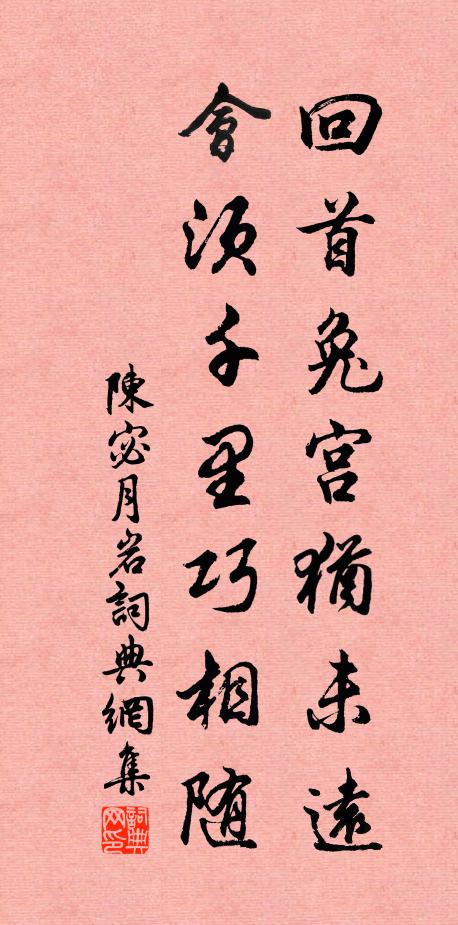 回首兔宮猶未遠
會須千里巧相随
陳宓月岩詞典網集
詞典网印